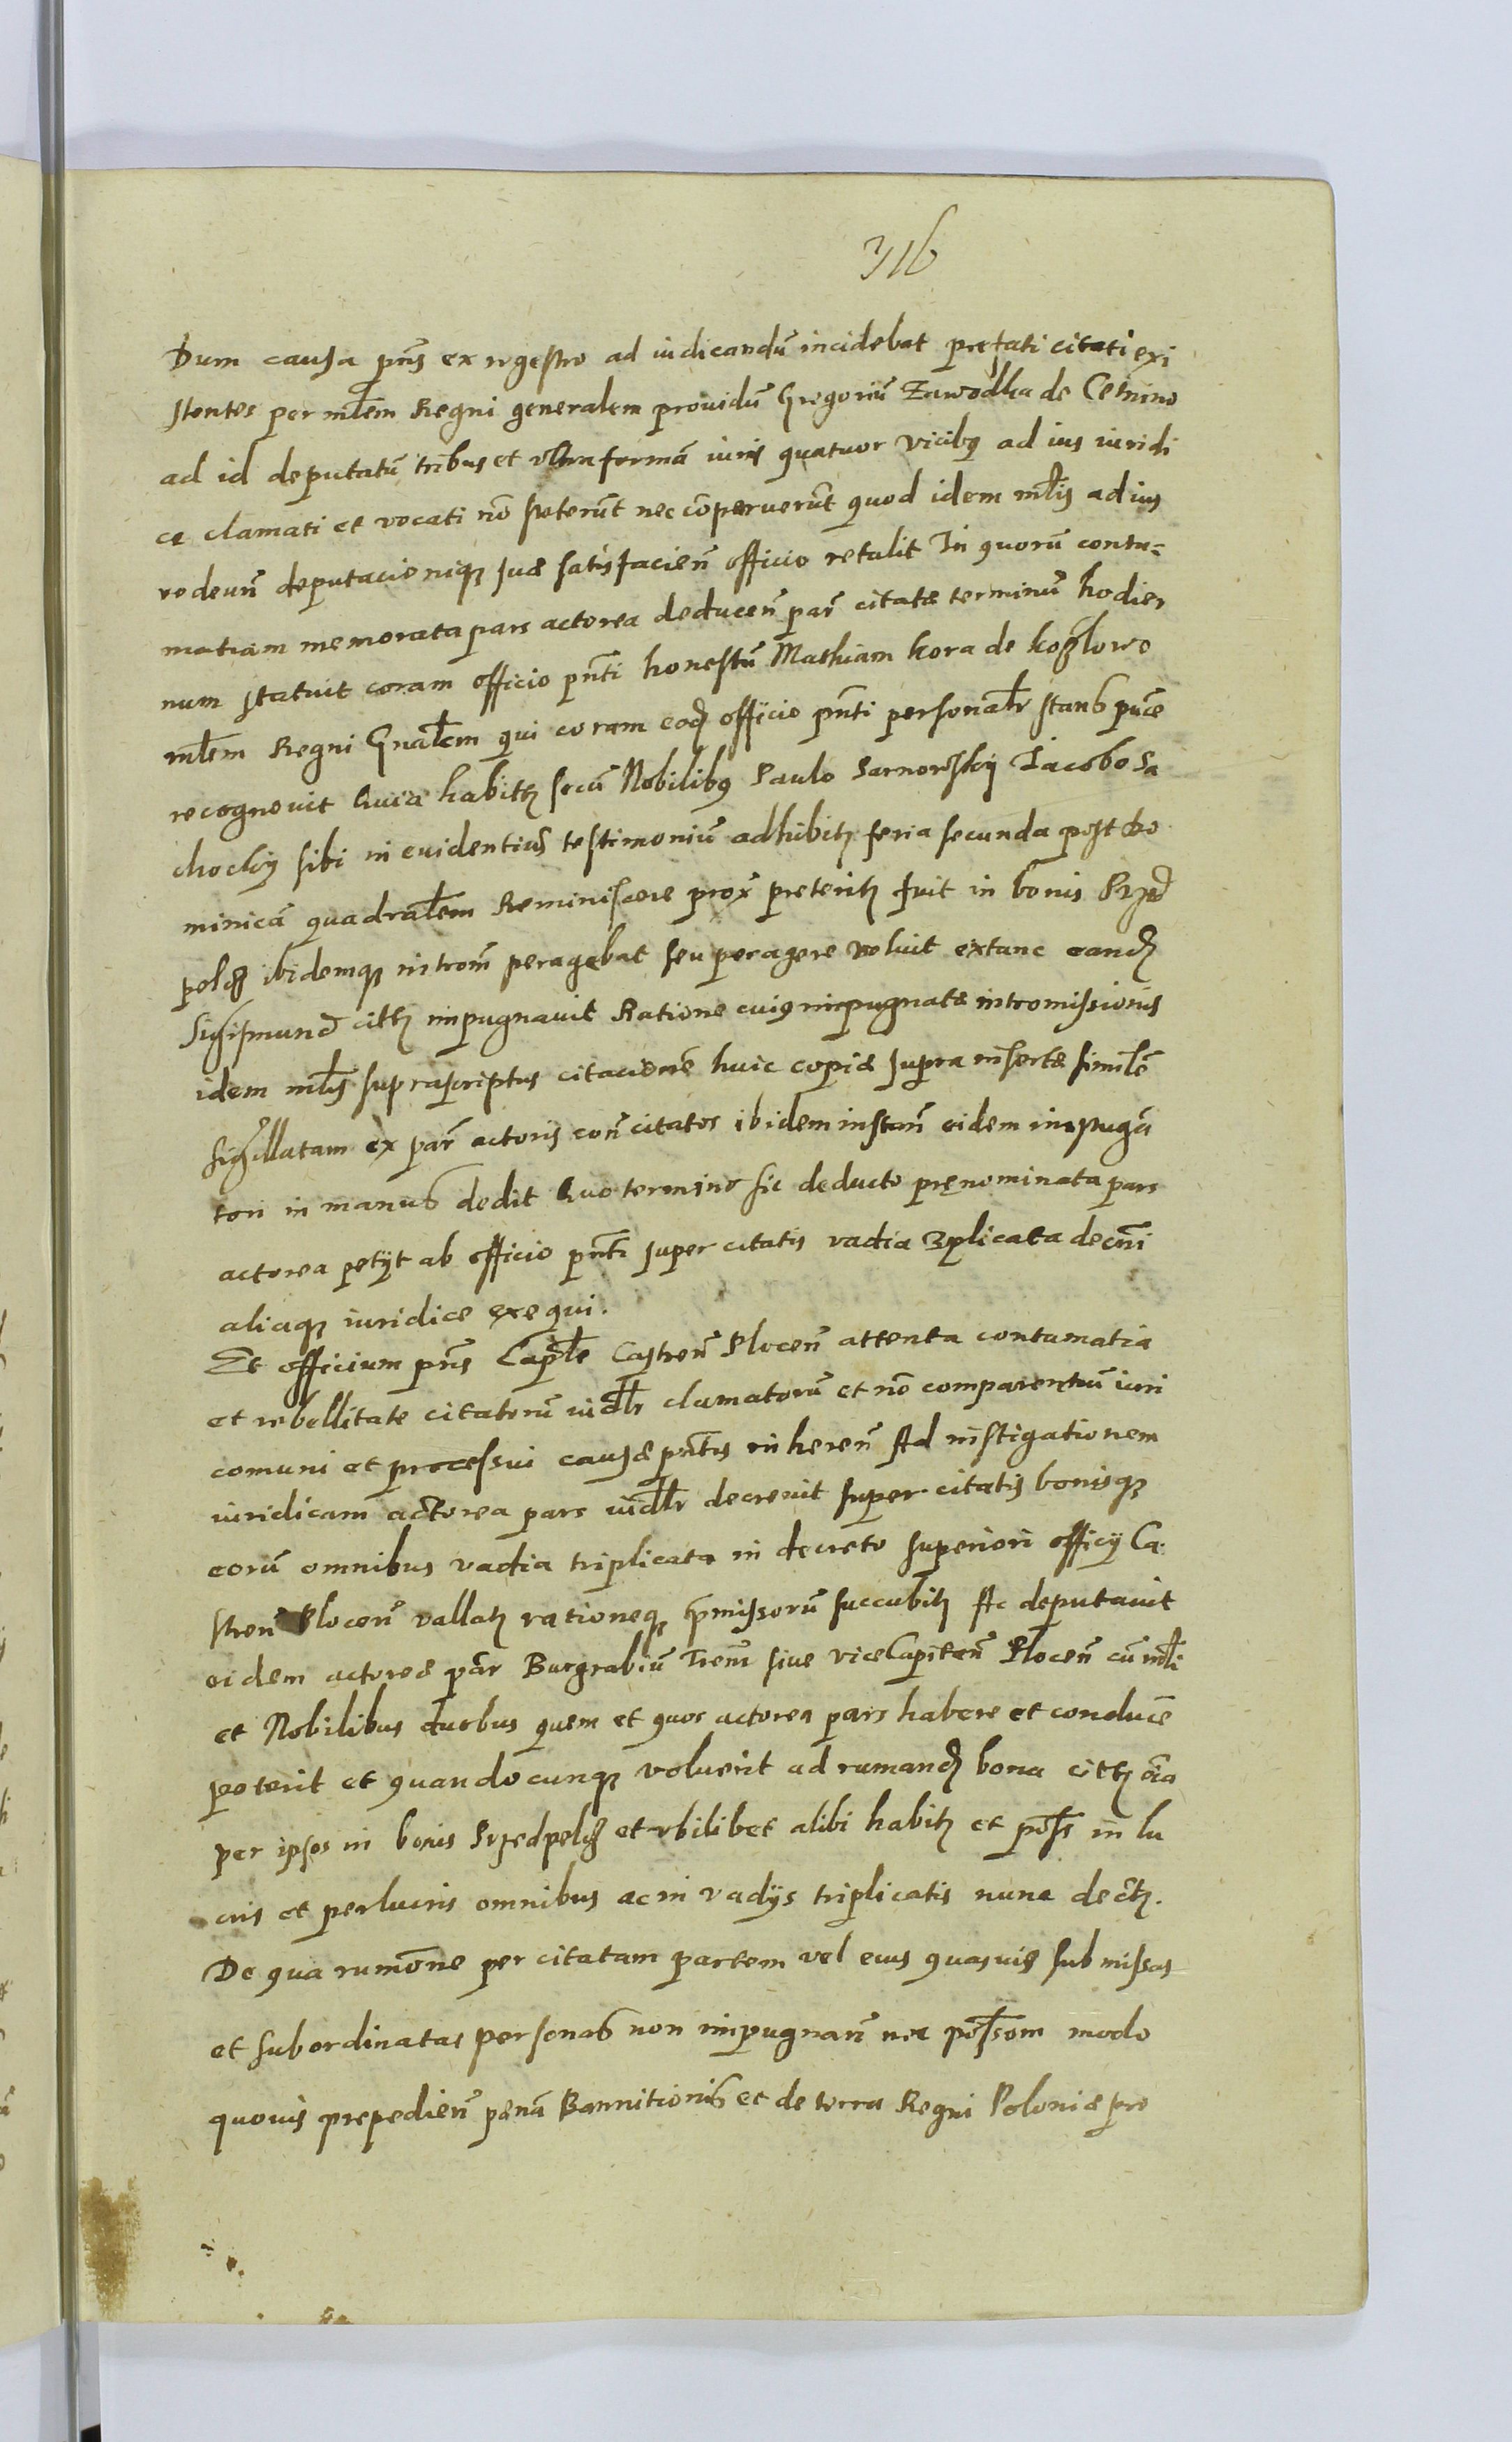 316
Dum causa pn̄s ex regestro ad iudicandū incidebat prefati citati exi
stentes per mlem Regni generalem prouidū Gregoriū Zawodka de Cetnino
ad id deputatū tribus et vltra formā iuris quatuor vicibꝯ ad ius iuridi
ce clamati et vocati nō steterūt nec cōperuerūt quod idem mlis ad ius
redeun̄ deputacioniqꝫ sue satisfacien̄ officio retulit In quorū contu=
matiam memorata pars actorea deducen̄ par̄ citatæ terminū hodier
num statuit coram officio pn̄ti honestū Mathiam kora de kozlowo
mlem Regni Gnalem qui coram eodꝫ officio pn̄ti personalr stans puce
recognouit Quia habitꝫ secū Nobilibꝯ Paulo Sarnowsky Iacobo Sa
chocky sibi in euidentius testimoniū adhibitꝫ feria secunda post do
minicā quadralem Reminiscere prox̄ preteritꝫ fuit in bonis Przed
pelcꝫ ibidemqꝫ introm̄ peragebat seu peragere voluit extunc eandꝫ
Sigismund citꝫ impugnauit Ratione cuiꝯ impugnatæ intromissionis
idem mlis suprascriptus citacionē huic copiæ supra insertæ similē
sigillatam ex par̄ actoris con̄ citatos ibidem instan̄ eidem impugā
tori in manus dedit Quo termino sic deducto prenominata pars
actorea petijt ab officio pn̄ti super citatis vadia 3plicata decr̄ni
aliaqꝫ iuridice exequi.
Et officium pn̄s Caple Castren̄ Plocen̄ attenta contumatia
et rebellitate citatorū iudlr clamatorū et nō comparentiū iuri
comuni et processui causæ pn̄tis inheren̄ Ad instigationem
iuridicam actorea pars iudlr decreuit super citatis bonisqꝫ
eorū omnibus vadia triplicata in decreto superiori officij Ca:
stren̄ Plocen̄ vallatꝫ rationeqꝫ p̄missorū succubitꝫ Ac deputauit
eidem actoreæ par̄ Burgrabiū Tren̄ siue viceCapiten̄ Plocen̄ cū mli
et Nobilibus duobus quem et quos actorea pars habere et conducē
poterit et quandocunqꝫ voluerit ad rumandꝫ bona citꝫ oīa
per ipsos in bonis Przedpelcꝫ et vbilibet alibi habitꝫ et poss in lu
cris et perlucris omnibus ac in vadijs triplicatis nunc decrtꝫ.
De qua rumōne per citatam partem vel eius quasuis submissas
et subordinatas personas non impugnan̄ nec possēm modo
quouis prepedien̄ penā Bannitionis et de terra Regni Poloniæ pro